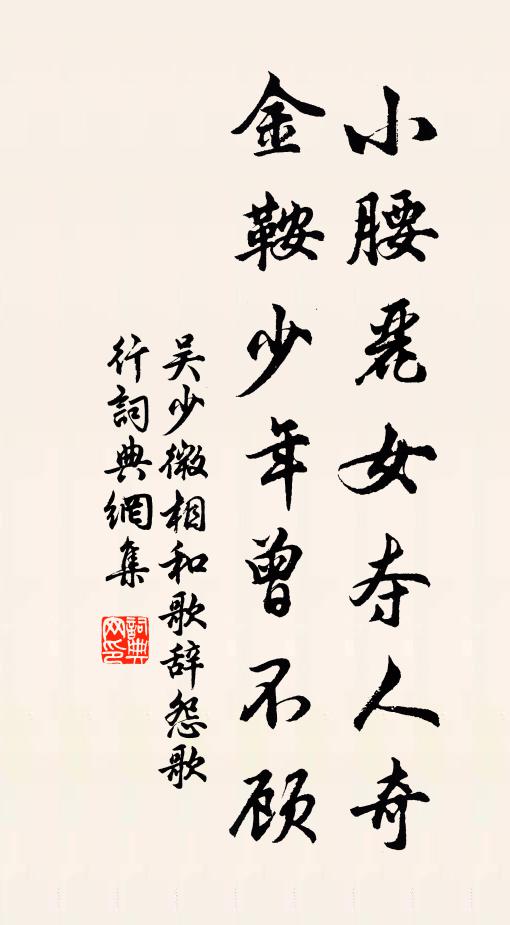 小腰丽女夺人奇
金鞍少年曾不顾
吴少微相和歌辞怨歌
行詞典網集
詞典
网印